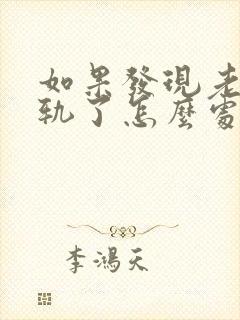 如果發現老
軌了怎麼處
李鴻天